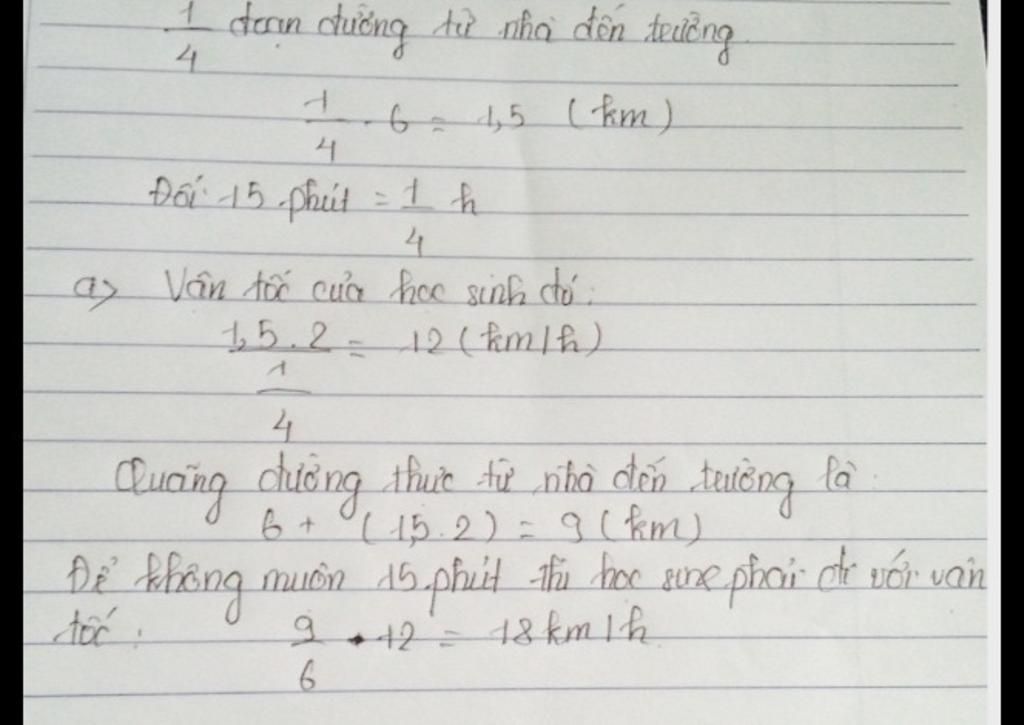 1/4 đoạn đường từ nhà đến trường
1/4 . 6 = 1,5 (km)
Đổi 15 phút = 1/4 h
a> Vận tốc của học sinh đó:
1,5.2 / 1/4 = 12 (km/h)
Quãng đường thực từ nhà đến trường là:
6 + (1,5.2) = 9 (km)
Để không muộn 15 phút thì học phải đi với vận
tốc: 9/6 . 12 = 18 km/h